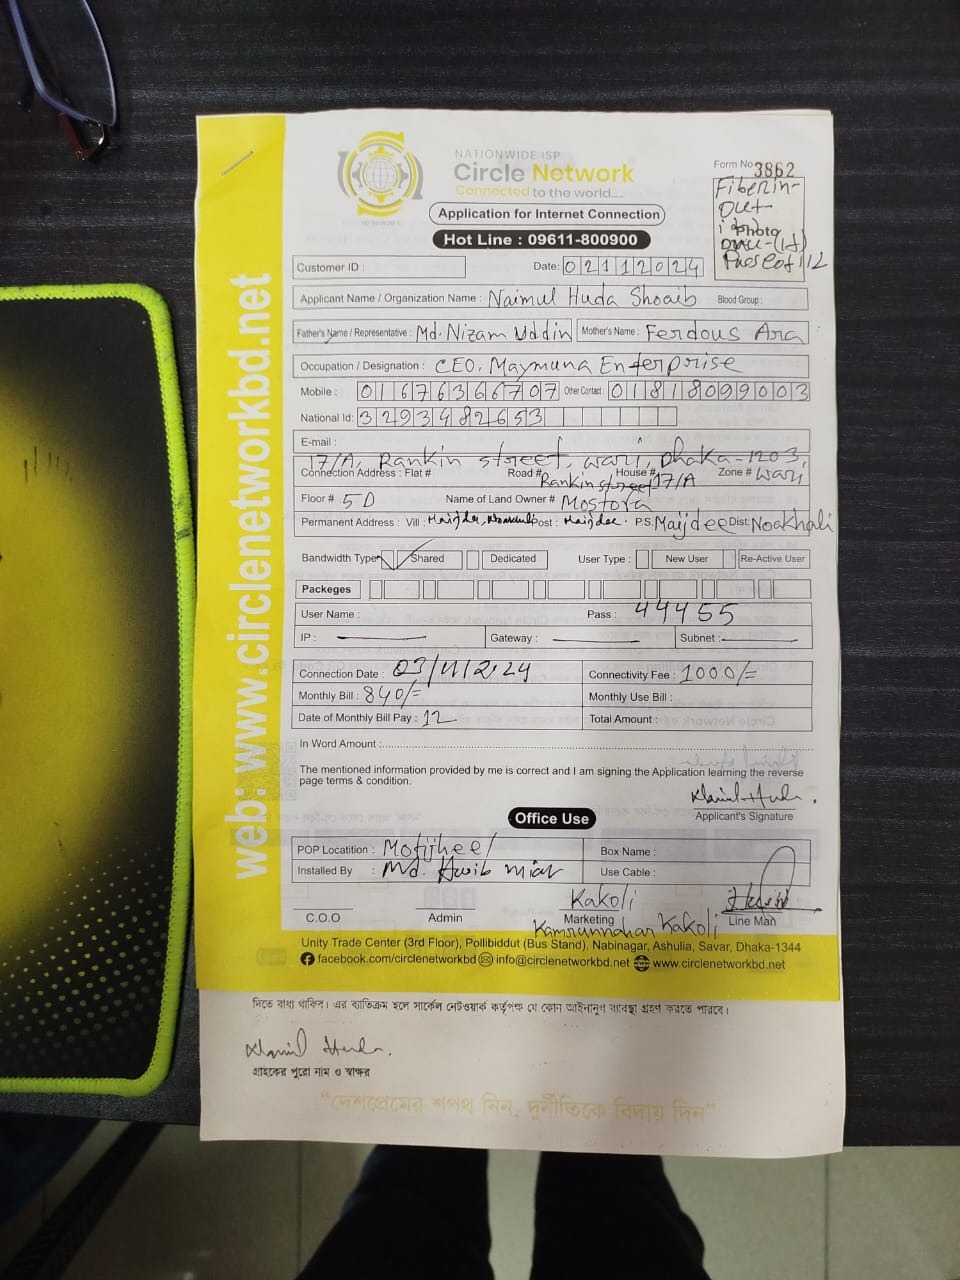 NATIONWIDE ISP
Circle Network
Connected to the world.....
Application for Internet Connection
Hot Line : 09611-800900
Form No 3862
Fiber in-
out-
photo
web: www.circlenetworkbd.net
Customer ID :
Date: 02112024
Applicant Name / Organization Name : Naimul Huda Shoaib Blood Group :
Father's Name / Representative : Md. Nizam Uddin Mother's Name : Ferdous Ara
Occupation / Designation : CEO, Maymuna Enterprise
Mobile : 01676366707 Other Contact : 01818099003
National Id: 3293482653
E-mail :
17/A, Rankin street, wari, Dhaka-1203,
Connection Address : Flat # Road # Rankin street House # 17/A Zone # wari
Floor # 5D Name of Land Owner # Mostofa
Permanent Address : Vill : Maijdee, Post : Maijdee. P.S. Maijdee Dist: Noakhali
Bandwidth Type Shared Dedicated User Type : New User Re-Active User
Packeges
User Name : Pass : 44455
IP : Gateway : Subnet :
Connection Date : 03/11/2024 Connectivity Fee : 1000/=
Monthly Bill : 840/= Monthly Use Bill :
Date of Monthly Bill Pay : 12 Total Amount :
In Word Amount :
The mentioned information provided by me is correct and I am signing the Application learning the reverse
page terms & condition.
Applicant's Signature
Office Use
POP Locatition : Motijheel Box Name :
Installed By : Md. Use Cable :
Kakoli
C.O.O Admin Marketing Line Man
Kamrunnahar Kakoli
Unity Trade Center (3rd Floor), Pollibiddut (Bus Stand), Nabinagar, Ashulia, Savar, Dhaka-1344
facebook.com/circlenetworkbd info@circlenetworkbd.net www.circlenetworkbd.net
দিতে বাধ্য থাকিব। এর ব্যতিক্রম হলে সার্কেল নেটওয়ার্ক কর্তৃপক্ষ যে কোন আইনানুগ ব্যাবস্থা গ্রহণ করতে পারবে।
গ্রাহকের পুরো নাম ও স্বাক্ষর
“দেশপ্রেমের শপথ নিন, দুর্নীতিকে বিদায় দিন”